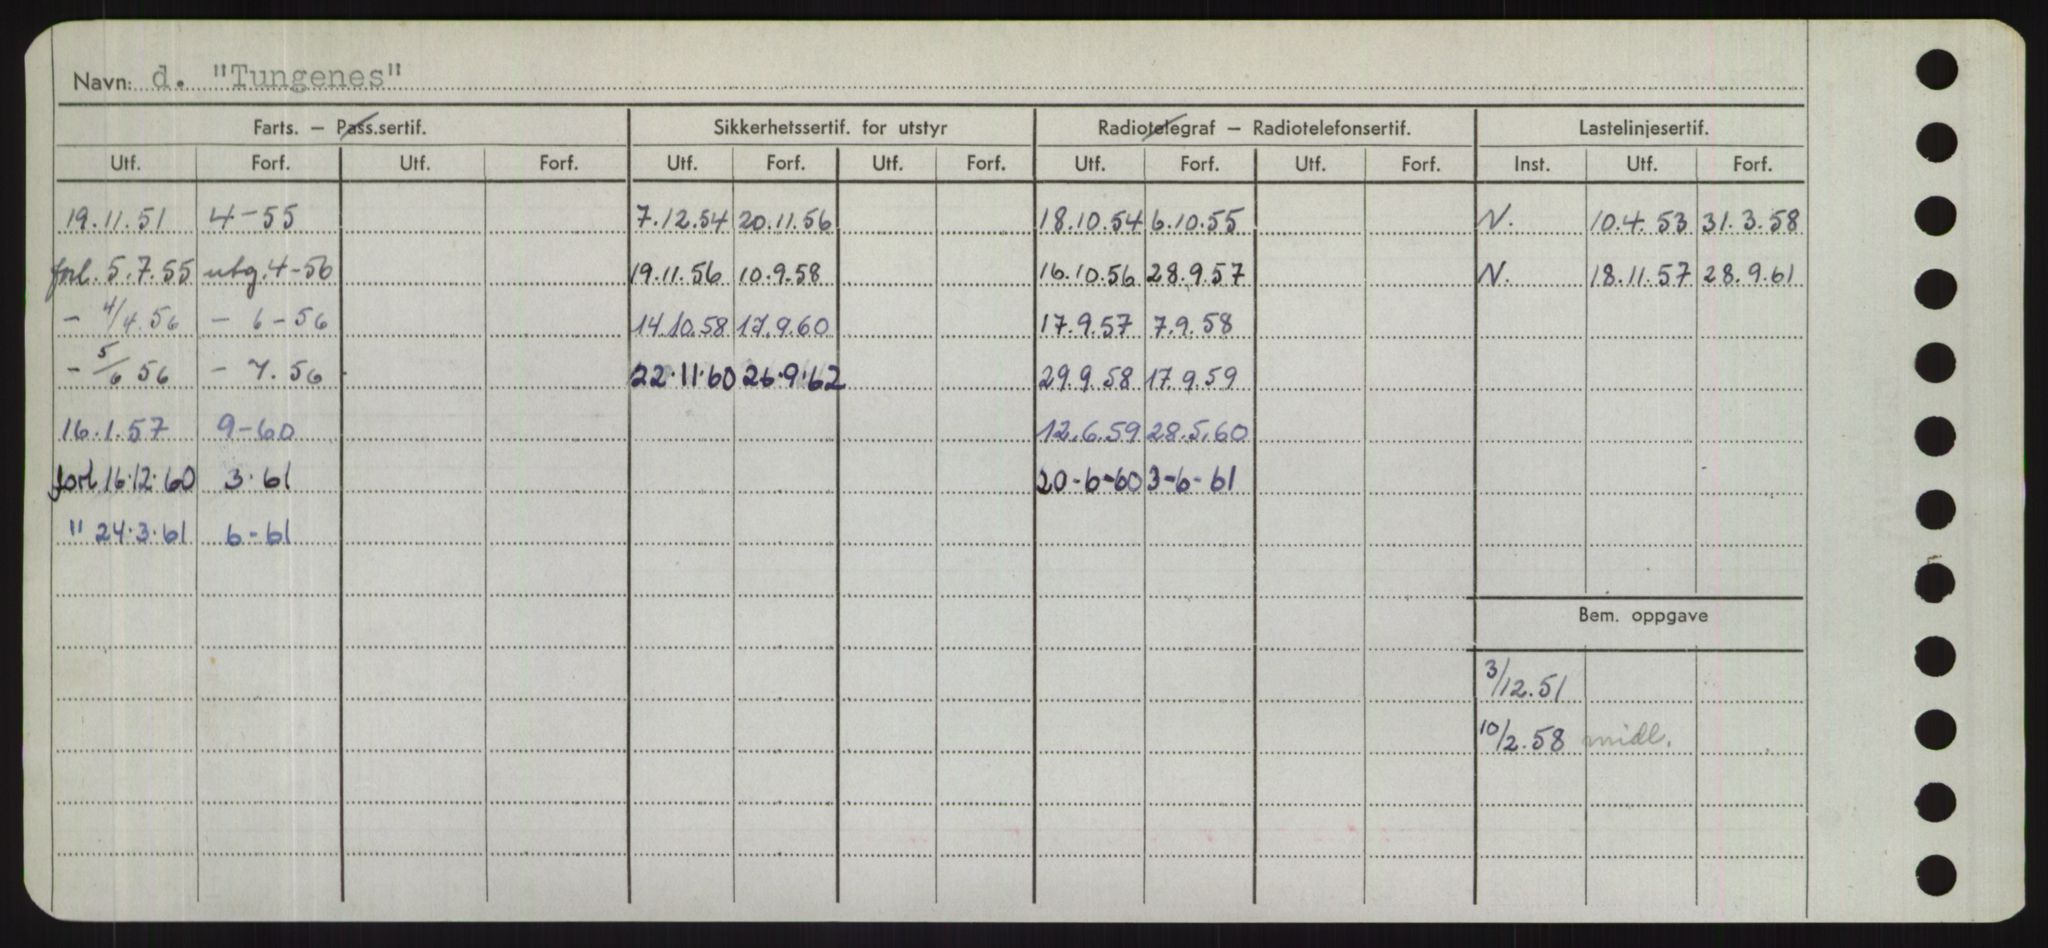 Navn: d. "Tungenes"
Farts. – Pass.sertif. Sikkerhetssertif. for utstyr Radiotelegraf – Radiotelefonsertif. Lastelinjesertif.
Utf. Forf. Utf. Forf. Utf. Forf. Utf. Forf. Utf. Forf. Utf. Forf. Inst. Utf. Forf.
19.11.51 4-55 7.12.54 20.11.56 18.10.54 6.10.55 N. 10.4.53 31.3.58
forl. 5.7.55 utg. 4-56 19.11.56 10.9.58 16.10.56 28.9.57 N. 18.11.57 28.9.61
- 4/4.56 - 6-56 14.10.58 17.9.60 17.9.57 7.9.58
- 5/6 56 - 7.56 22.11.60 26.9.62 29.9.58 17.9.59
16.1.57 9-60 12.6.59 28.5.60
forl. 16.12.60 3.61 20-6-60 3-6-61
" 24.3.61 6-61
Bem. oppgave
3/12.51
10/2.58 midl.